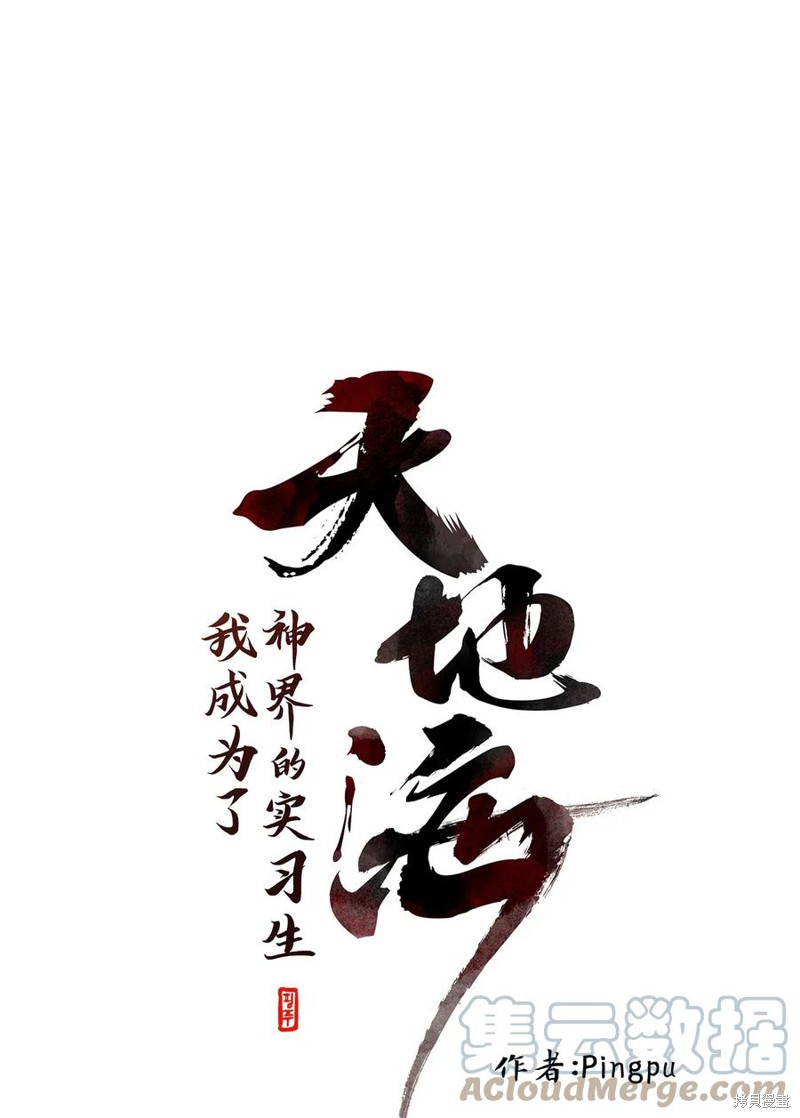 天地海
我成为了
神界的实习生
集云数据
作者:Pingpu
ACloudMerge.com
拷貝漫畫